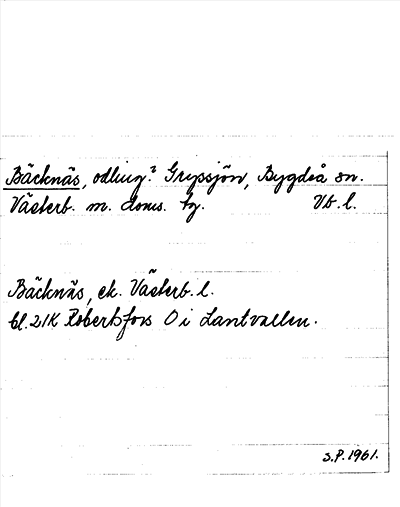 Bäcknäs, odling? Gryssjön, Bygdeå sn.
Västerb. m. doms. hg. Vb. l.
Bäcknäs, ek. Västerb. l.
bl. 21K Robertsfors O i Lantvallen.
S.P. 1961.